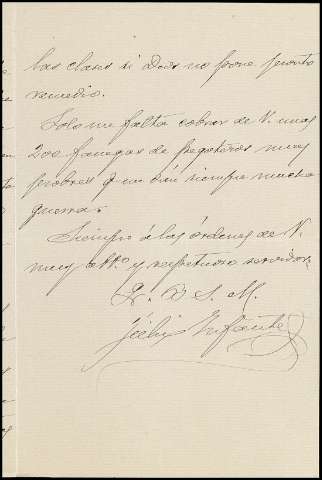 las clases si Dios no pone pronto
remedio.
Solo me falta cobrar de V. unas
200 fanegas de pegoteros muy
pobres q me dan siempre mucha
guerra.
Siempre á las órdenes de V.
muy att.º y respetuoso servidor
Q. B. S. M.
Félix Infante